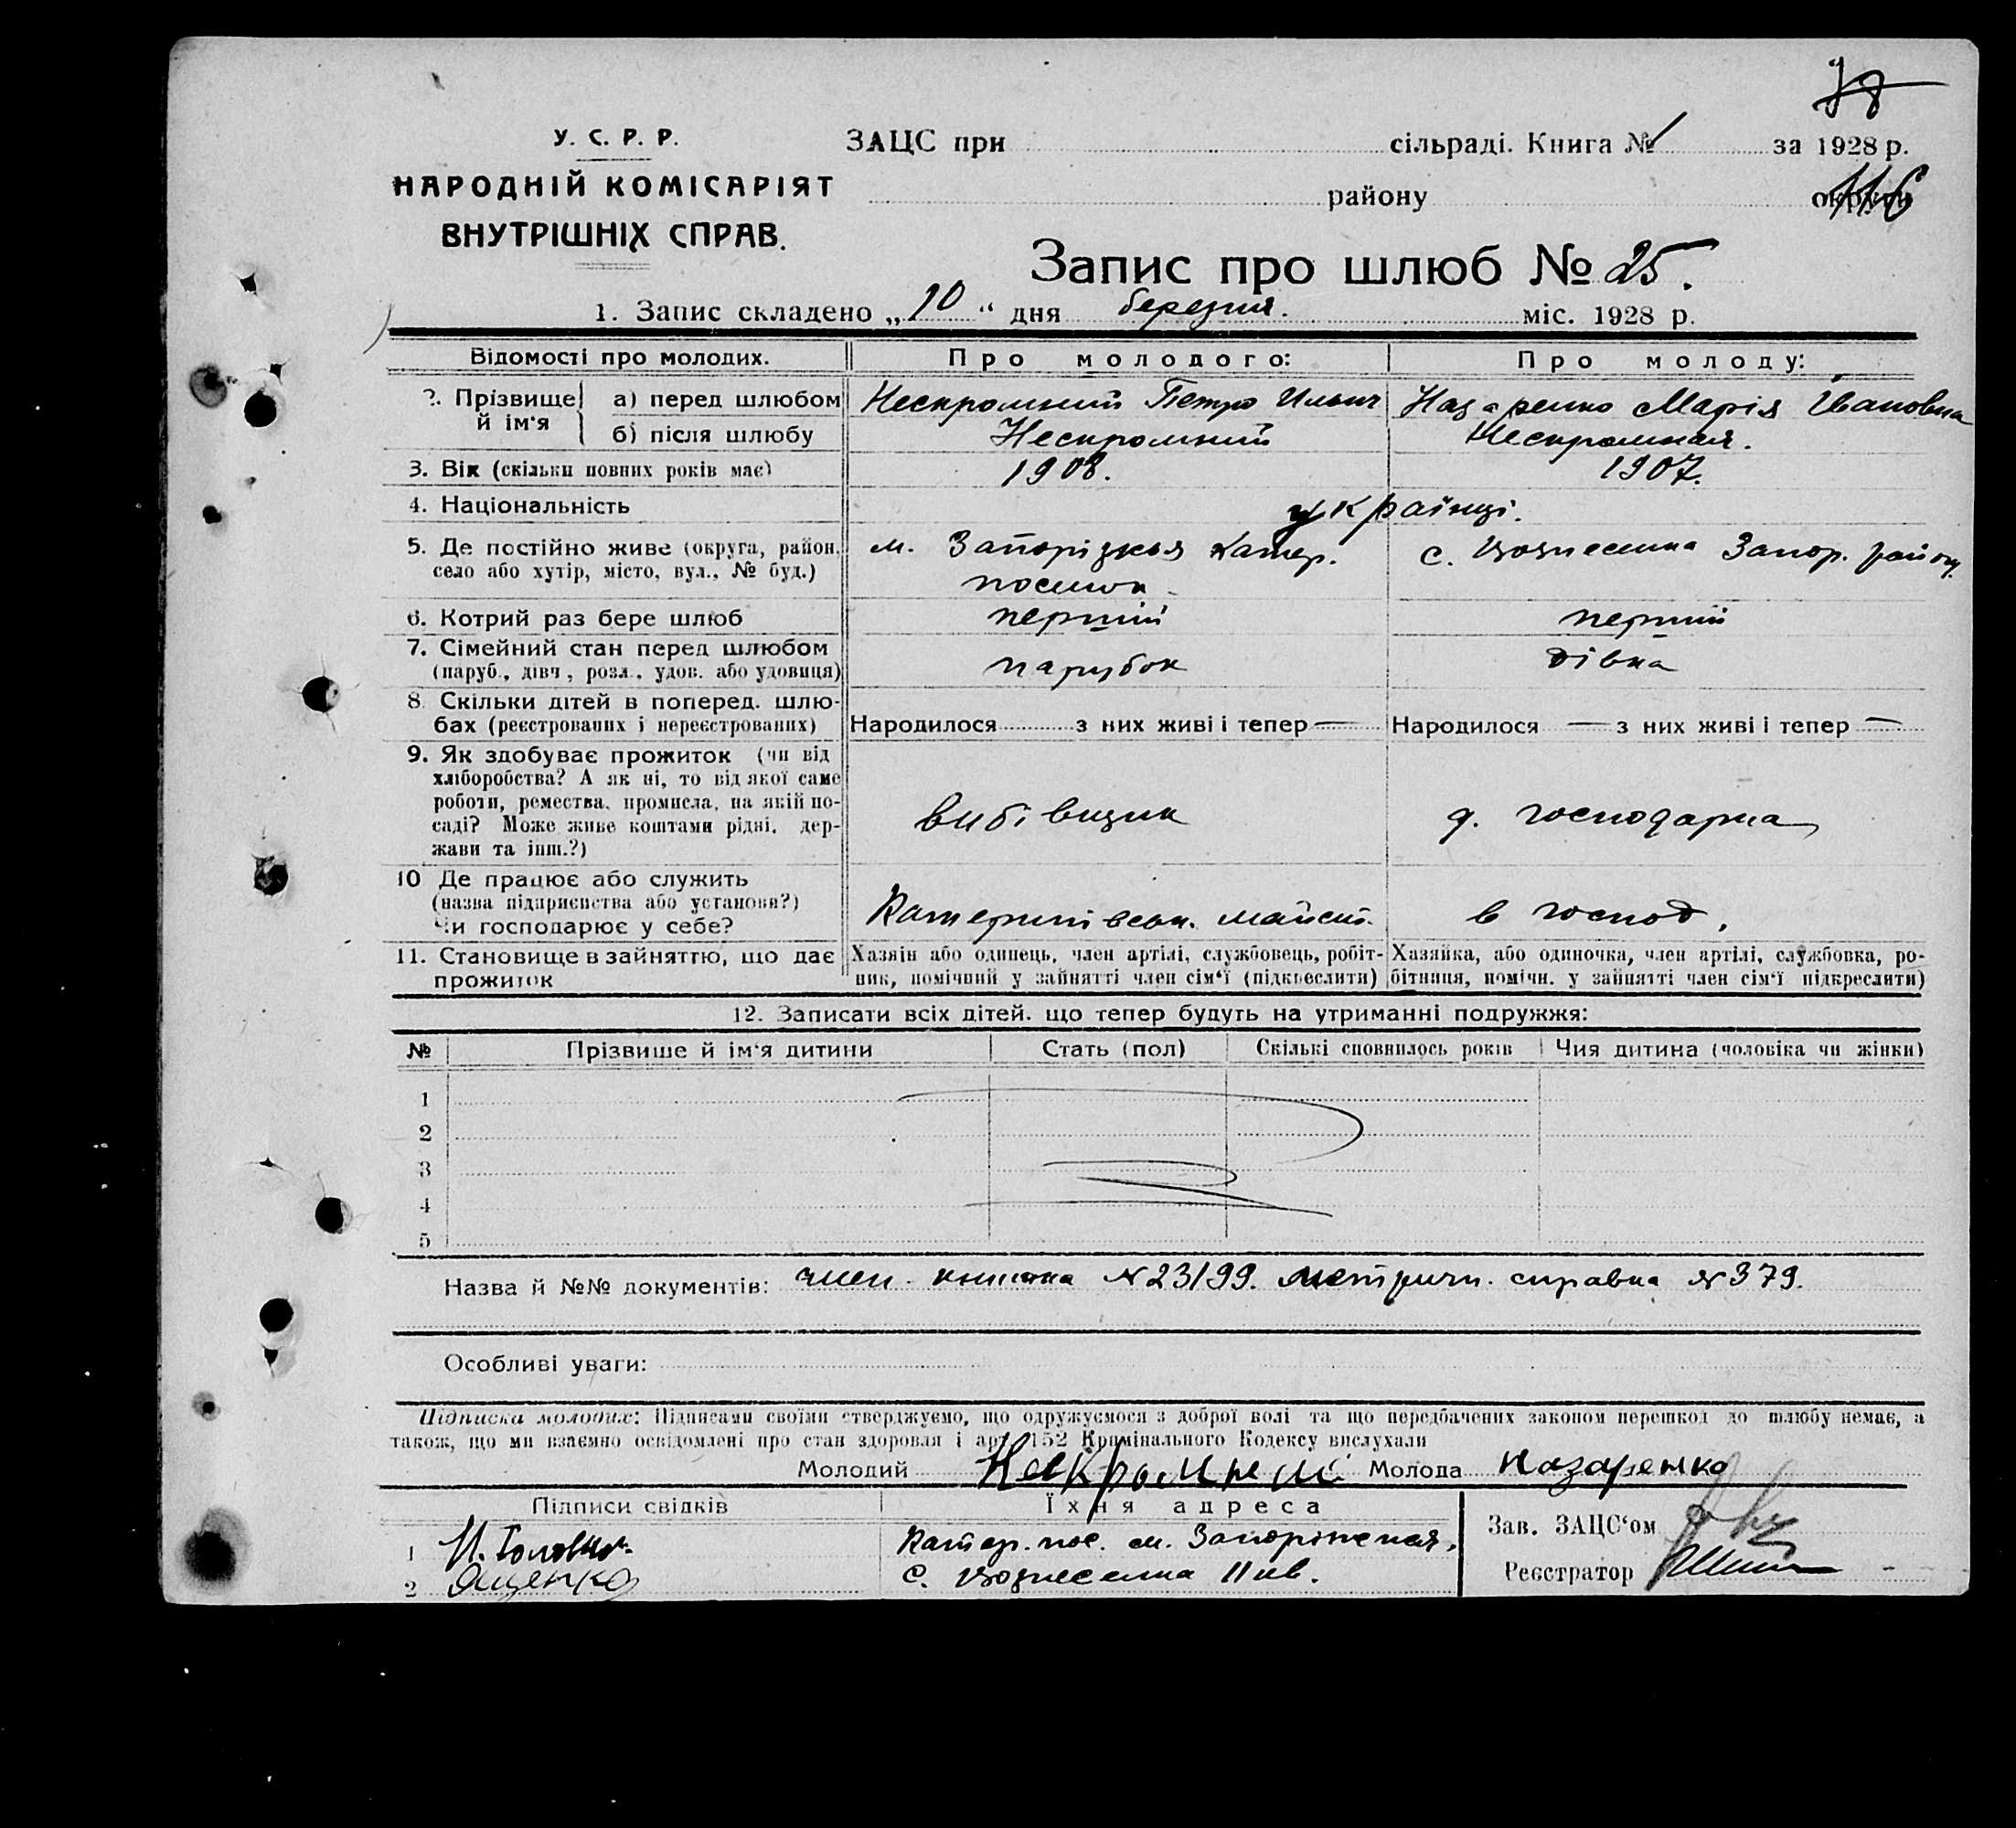 78
У. С. Р. Р.
НАРОДНІЙ КОМІСАРІЯТ
ВНУТРІШНІХ СПРАВ.
ЗАЦС при сільраді. Книга № 1 за 1928 р.
району 116
Запис про шлюб № 25.
1. Запис складено „10“ дня березня. міс. 1928 р.
Відомості про молодих. Про молодого: Про молоду:
2. Прізвище й ім'я а) перед шлюбом Нескромний Петро Ильич Назаренко Марія Івановна
б) після шлюбу Нескромний Нескромная.
3. Вік (скільки повних років має) 1908. 1907.
4. Національність українці.
5. Де постійно живе (округа, район, м. Запоріжжя Катер. с. Вознесенка Запор. район.
село або хутір, місто, вул., № буд.) поселок
6. Котрий раз бере шлюб перший перший
7. Сімейний стан перед шлюбом парубок дівка
(паруб., дівч., розл., удов. або удовиця)
8. Скільки дітей в поперед. шлю-
бах (реєстрованих і нереєстрованих) Народилося з них живі і тепер — Народилося — з них живі і тепер —
9. Як здобуває прожиток (чи від
хліборобства? А як ні, то від якої саме
роботи, ремества, промисла, на якій по-
саді? Може живе коштами рідні, дер- вибівщик д. господарка
жави та інш.?)
10 Де працює або служить
(назва підприємства або установи?) Катеринівськ. майст. в господ.
Чи господарює у себе?
11. Становище в зайняттю, що дає Хазяїн або одинець, член артілі, службовець, робіт- Хазяйка, або одиночка, член артілі, службовка, ро-
прожиток ник, помічний у зайнятті член сім'ї (підкреслити) бітниця, помічн. у зайнятті член сім'ї підкреслити)
12. Записати всіх дітей, що тепер будуть на утриманні подружжя:
№ Прізвише й ім'я дитини Стать (пол) Скількі сповнилось років Чия дитина (чоловіка чи жінки)
1
2
3
4
5
Назва й №№ документів: член. книжка №23199. метричн. справка №379.
Особливі уваги:
Підписка молодих: Підписами своїми стверджуємо, що одружуємося з доброї волі та що передбачених законом перешкод до шлюбу немає, а
також, що ми взаємно освідомлені про стан здоровля і арт. 152 Кримінального Кодексу вислухали
Молодий Молода Назаренко
Підписи свідків Їхня адреса Зав. ЗАЦС'ом
1 Катер. пос. м. Запорожжя.
2 Яценко с. Вознесенка Реєстратор